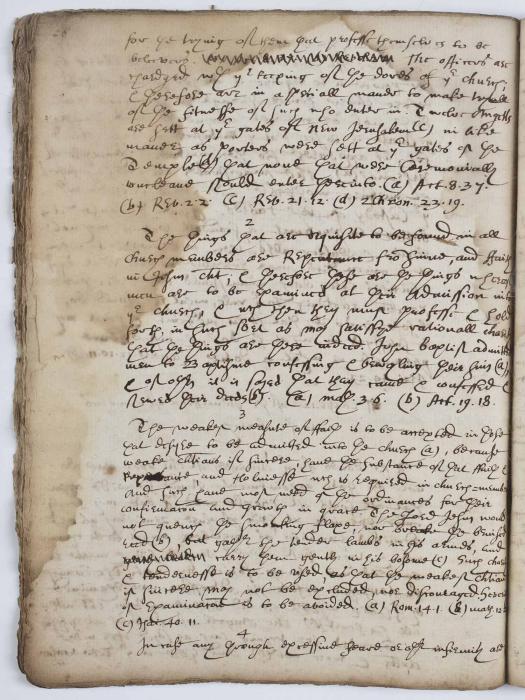 for the trying of them that professe themselves to be
beleevers. The officers are
charged with ye keeping of the dores of ye church,
& therefore are in a speciall maner to make tryall
of the fitnesse of such who enter. Twelve Angells
are sett at ye gates of New Jerusalem (c) in like
maner as porters were sett at ye gates of the
Temple (d) that none that were Ceremonially
uncleane should enter thereinto. (a) Act. 8. 37.
(b) Rev. 2. 2. (c) Rev. 21. 12. (d) 2 Chron. 23. 19.
2
The things that are requisite to be found in all
church members are Repentance fro sinne, and faith
in John Cht, & therefore these are the things wherof
men are to be examined at their admission into
ye church, & wch then they must professe & hold
forth, in such sort as may satisfye rationall charity
that the things are there indeed. John Baptist admitted
men to Baptisme confessing & bewayling their sins (a),
& of others it is sayed that they came & confessed &
shewed their deeds (b). (a) math. 3. 6. (b) Act. 19. 18.
3
The weakest measure of faith is to be accepted in those
that desyre to be admitted into the church (a), because
weake christians if sincere, have the substance of that faith &
and Holinesse wch is required in church members
And such have most need of the ordinances for their
confirmation and growth in grace. The Lord Jesus would
not quench the smoaking flaxe, nor break the bruised
reed (b), but gather the tender lambs in his armes, and
carry them gently in his bosome (c). Such charity
& tendernesse is to be used, as that the weakest christian
if sincere may not be excluded, nor discouraged. Severity
of Examination is to be avoided. (a) Rom. 14. 1. (b) math. 12.
(c) Isai. 40. 11.
4
In case any through excessive feare or other infirmity are